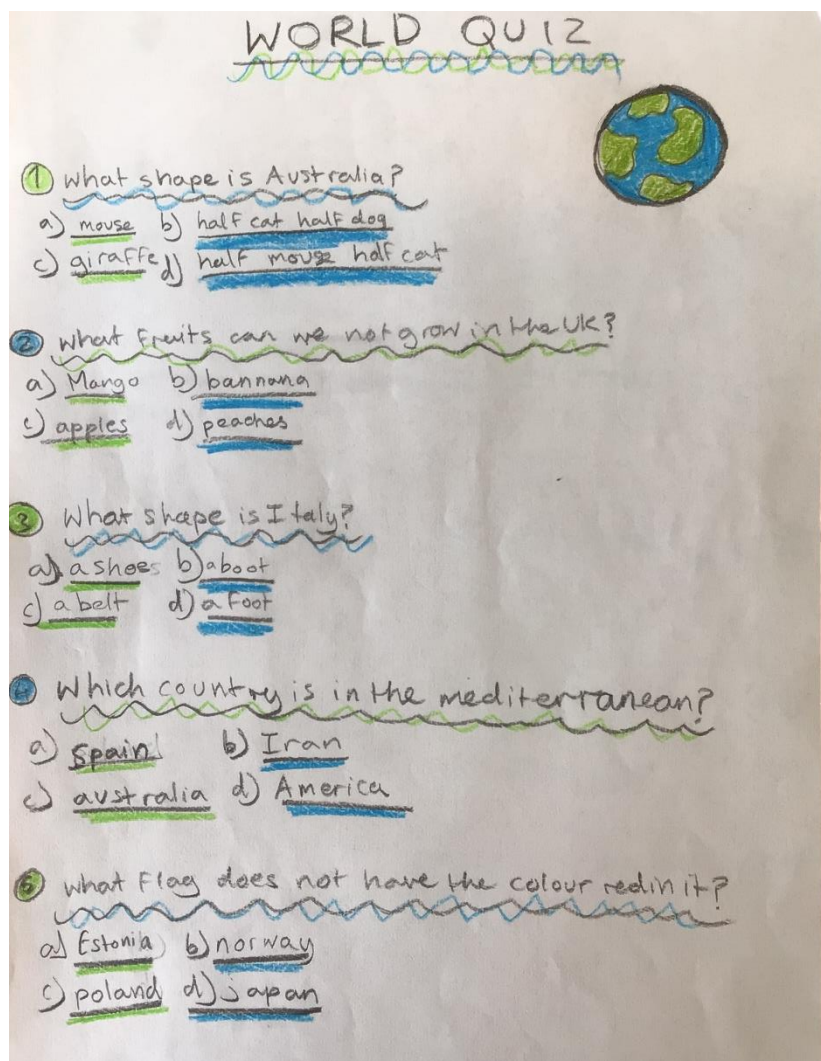 WORLD QUIZ
1 What shape is Australia?
a) mouse b) half cat half dog
c) giraffe d) half mouse half cat
2 What fruits can we not grow in the UK?
a) Mango b) bannana
c) apples d) peaches
3 What shape is Italy?
a) a shoes b) a boot
c) a belt d) a foot
4 Which country is in the mediterranean?
a) Spain b) Iran
c) australia d) America
5 What Flag does not have the colour red in it?
a) Estonia b) norway
c) poland d) japan